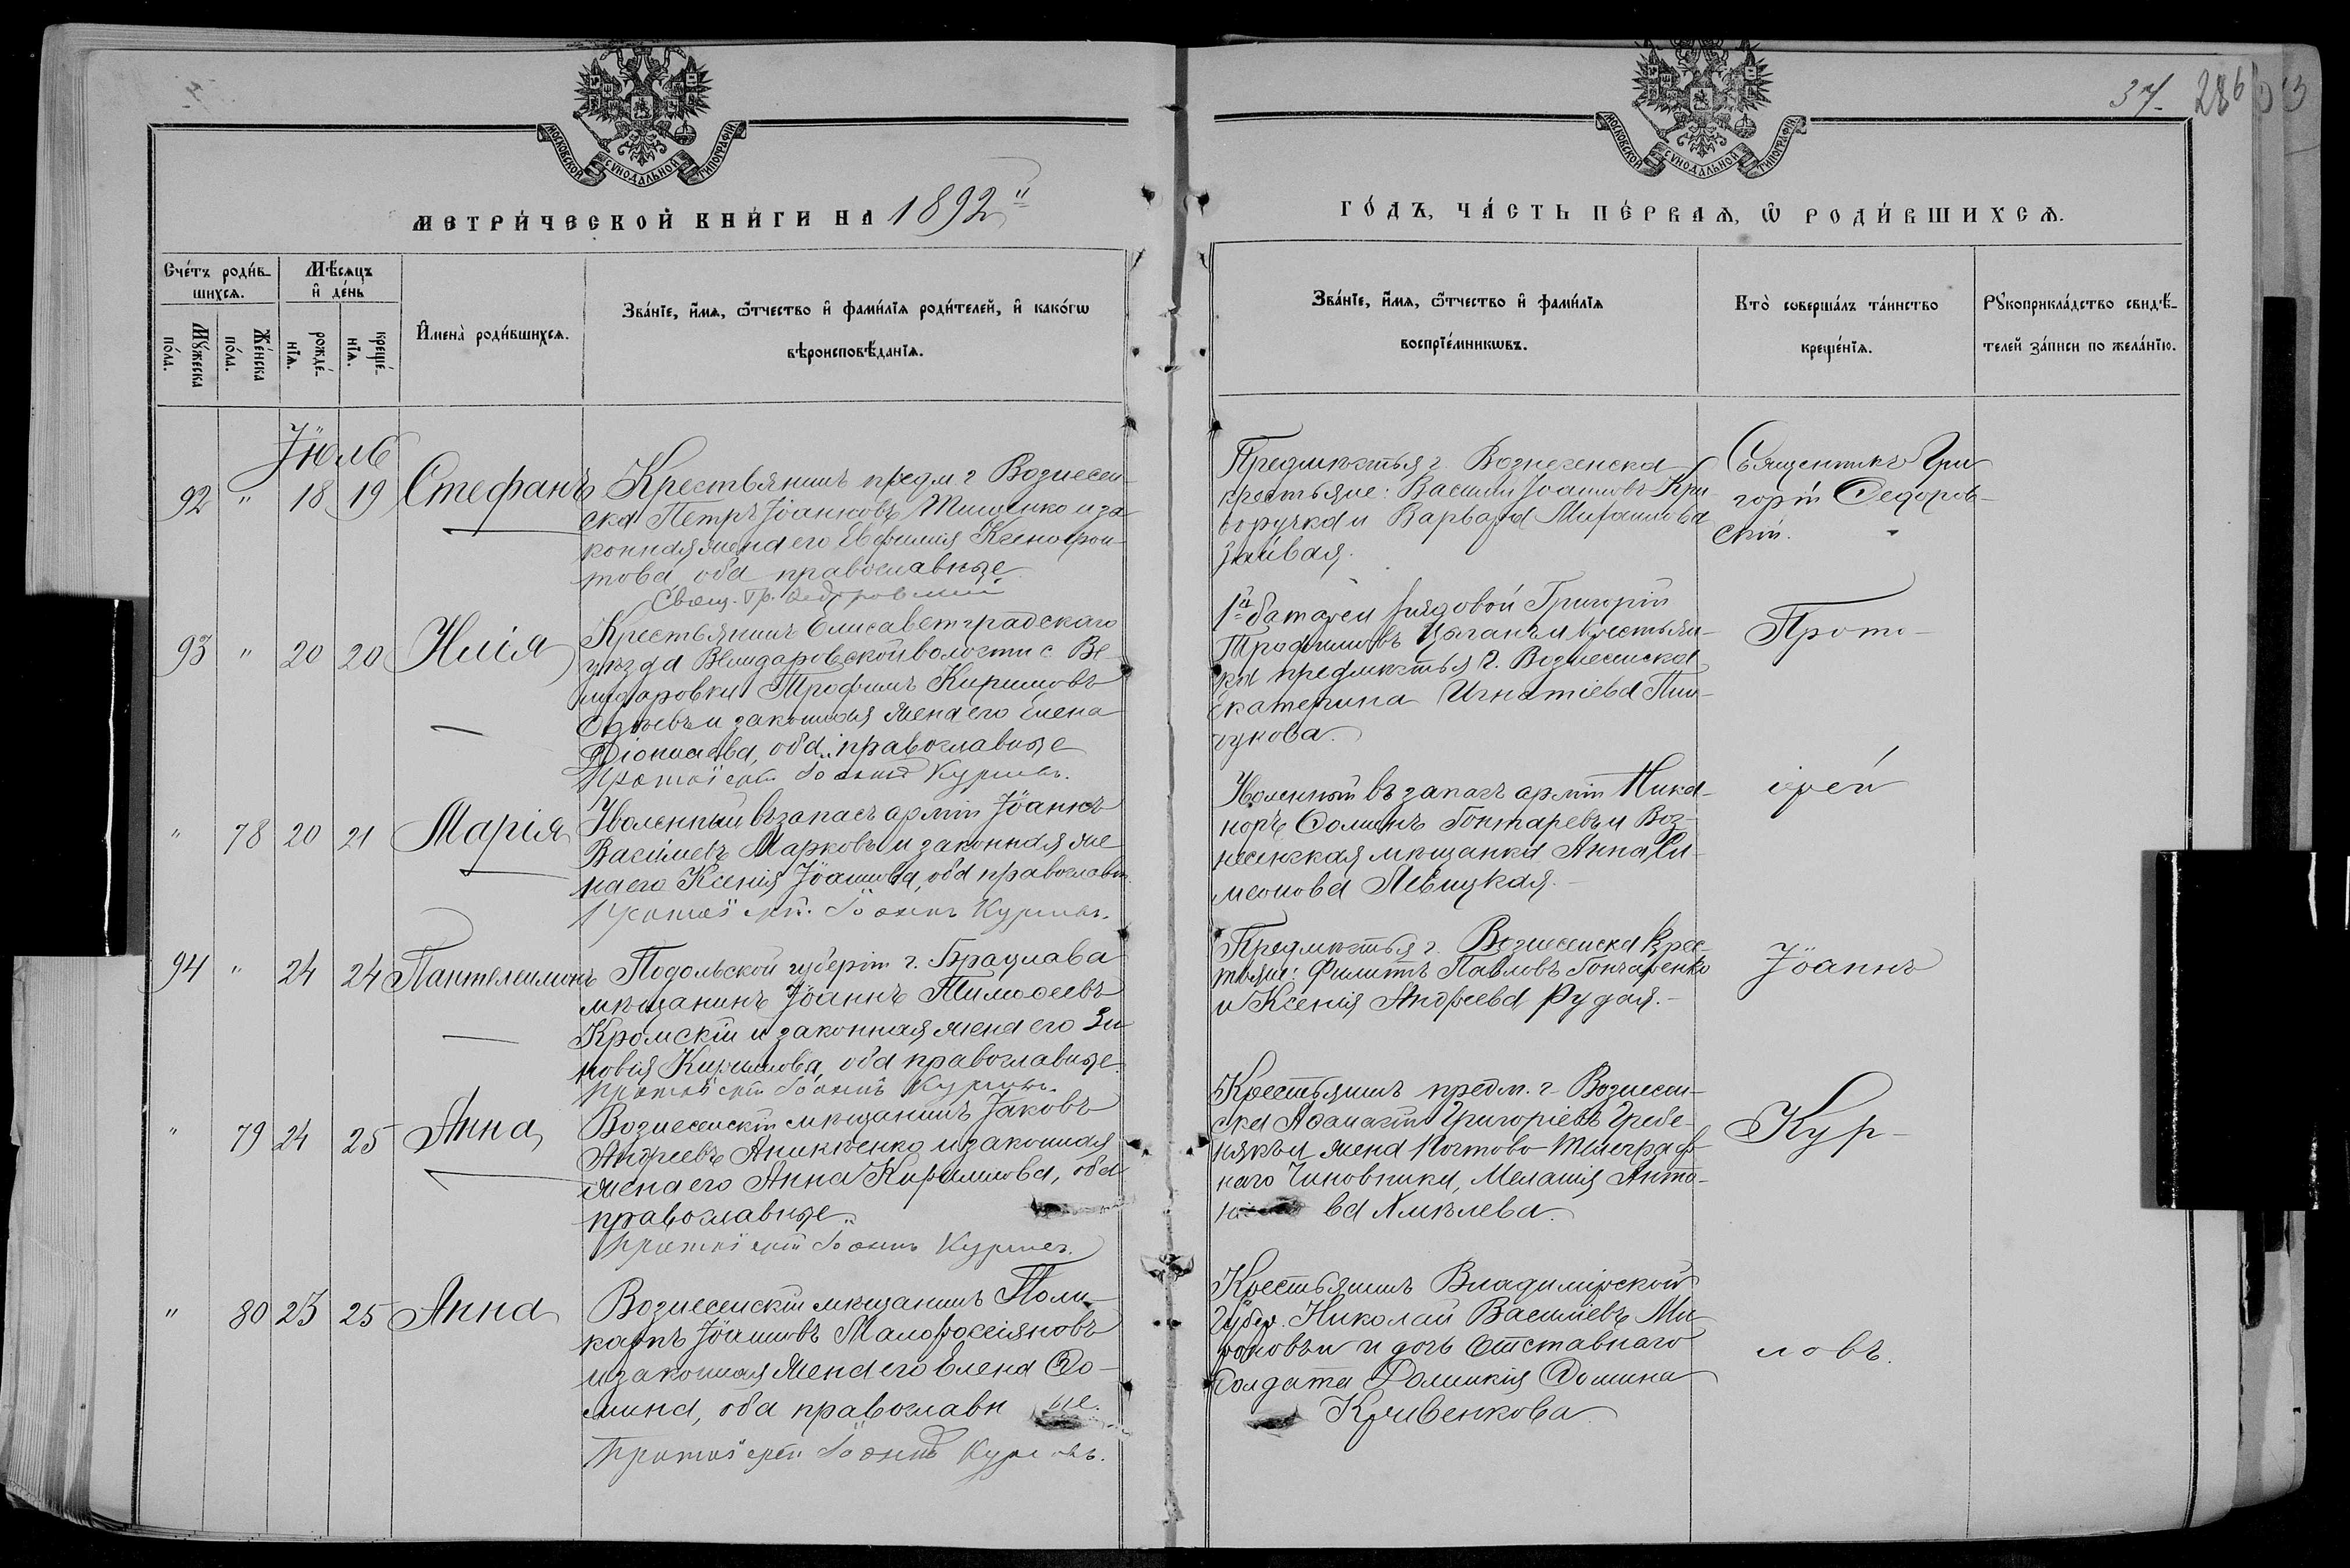 МОСКОВСКОЙ СѴНОДАЛЬНОЙ ТИПОГРАФІИ
МЕТРИ́ЧЕСКОЙ КНИ́ГИ НА 1892 й
Сче́тъ роди́в-
шихсѧ.
Мѣ́сѧцъ
и҆ де́нь
Мꙋ́жеска
по́ла.
Же́нска
по́ла.
рожде́-
нїѧ.
креще́-
нїѧ.
И҆мена̀ роди́вшихсѧ.
Зва́нїе, и҆́мѧ, ѻ҆́тчество и҆ фами́лїѧ роди́телей, и҆ како́гѡ
вѣроисповѣ́данїѧ.
Іюль
92 " 18 19 Стефанъ
Крестьянинъ предм. г Вознесен-
ска Петръ Іоанновъ Тищенко и за-
конная жена его Евфимія Ксенофон-
това, оба православные
Свящ. Гр. Федоровскій
93 " 20 20 Илія
Крестьянинъ Елисаветградскаго
уѣзда Велидаровской волости с. Ве-
лидаровки Трофимъ Кириловъ
и законная жена его Елена
Діонисіева, оба православные
Протоіерей Іоаннъ Курловъ.
" 78 20 21 Марія
Уволенный въ запасъ арміи Іоаннъ
Васильевъ Марковъ и законная же-
на его Ксенія Іоаннова, оба православн.
Протоіерей Іоаннъ Курловъ.
94 " 24 24 Пантелеимонъ
Подольской губерніи г. Брацлава
мѣщанинъ Іоаннъ Тимоѳеевъ
Кромскій и законная жена его Зи-
новія Кирилова, оба православные
Протоіерей Іоаннъ Курловъ.
" 79 24 25 Анна
Вознесенскій мѣщанинъ Іаковъ
Андреевъ Аникіенко и законная
жена его Анна Кирилова, оба
православные.
Протоіерей Іоаннъ Курловъ.
" 80 25 25 Анна
Вознесенскій мѣщанинъ Поли-
карпъ Іоанновъ Малороссіяновъ
и законная жена его Елена Ѳо-
мина, оба православн ые.
Протоіерей Іоаннъ Курловъ.
37 286
МОСКОВСКОЙ СѴНОДАЛЬНОЙ ТИПОГРАФІИ
ГО́ДЪ, ЧА́СТЬ ПЕ́РВАѦ, Ѡ҆ РОДИ́ВШИХСѦ.
Зва́нїе, и҆́мѧ, ѻ҆́тчество и҆ фами́лїѧ
воспрїе́мникѡвъ.
Кто̀ соверша́лъ та́инство
креще́нїѧ.
Рꙋкоприкла́дство свидѣ́-
телей за́писи по жела́нїю.
Предмѣстья г. Вознесенска
крестьяне: Василій Іоанновъ Кри-
воручка и Варвара Михаилова
Священникъ Гри-
горій Ѳедоров-
скій.
1й батареи рядовой Григорій
Трофимовъ Цыганъ и крестьян-
ка предмѣстья г. Вознесенска
Екатерина Игнатіева Пин-
чукова.
Прото-
Уволенный въ запасъ арміи Ника-
норъ Ѳоминъ Гонтаревъ и Воз-
несенская мѣщанка Анна Си-
меонова Левицкая.
іерей
Предмѣстья г. Вознесенска крес-
тьяне: Филиппъ Павловъ Гончаренко
и Ксенія Андреева Рудая.
Іоаннъ
Крестьянинъ предм. г Вознесен-
ска Аѳанасій Григоріевъ Гребе-
някъ и жена Почтово-Телеграф-
наго Чиновника, Меланія Анто-
ва Хмѣлева.
Кур-
Крестьянинъ Владимірской
Губер. Николай Васильевъ Ми-
роновъ и дочь отставнаго
Солдата Ѳомина
Кривенкова
ловъ.